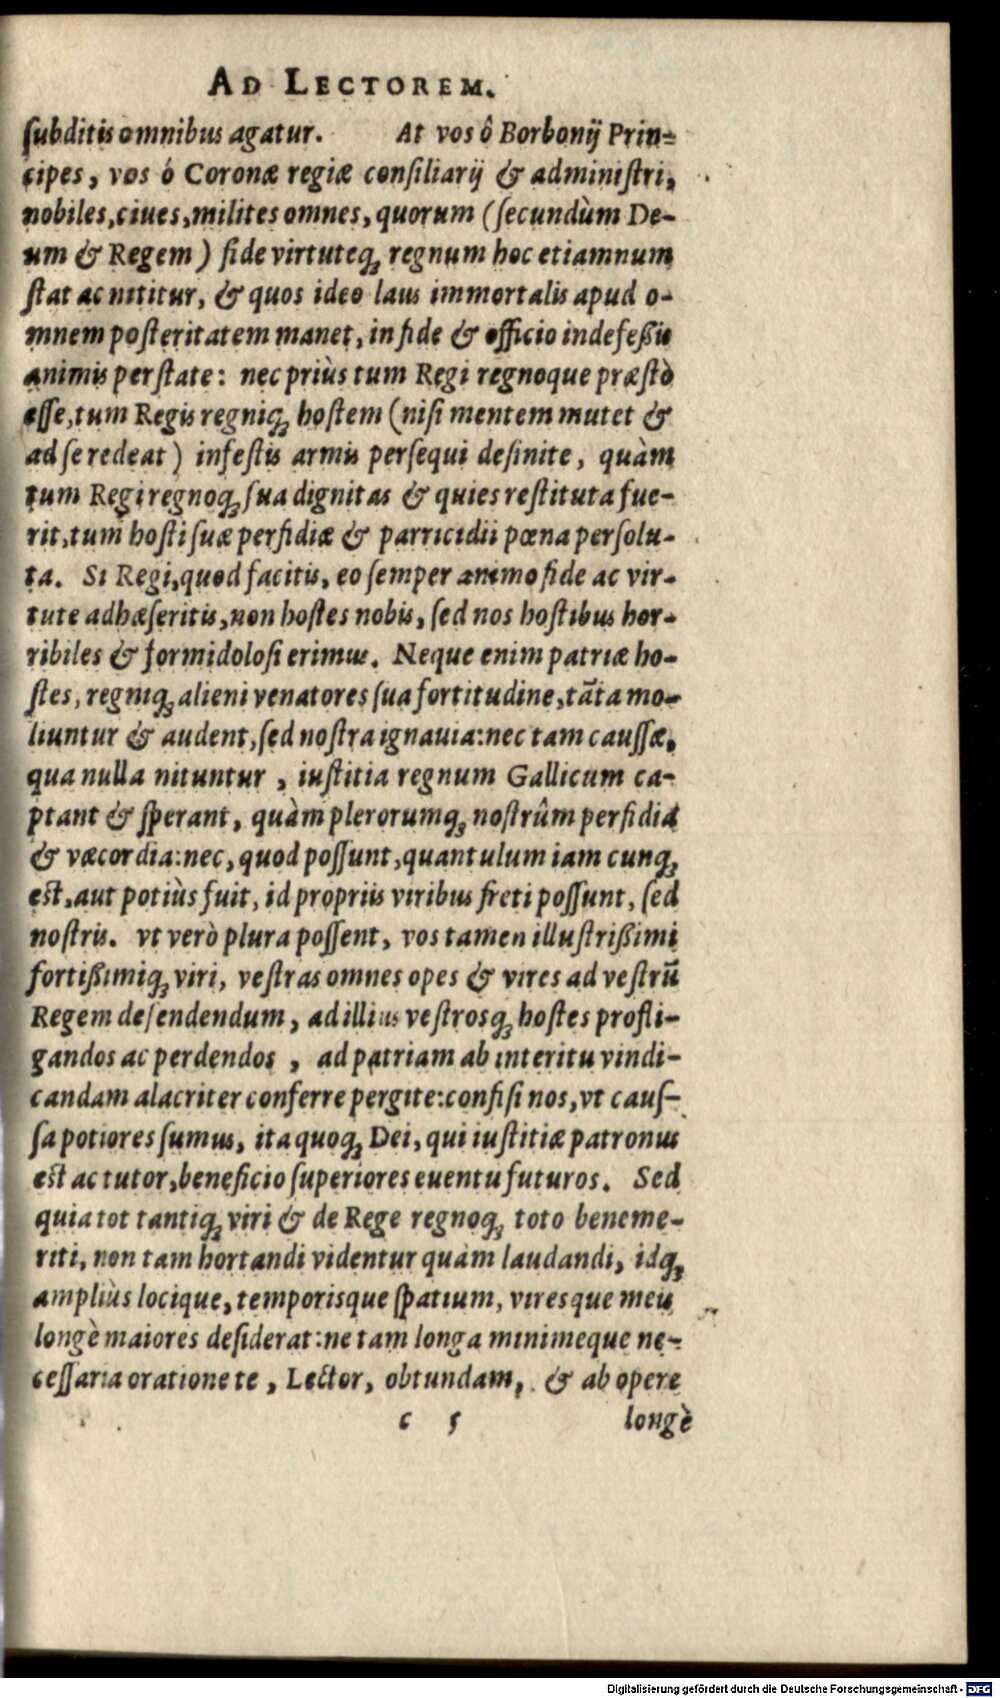 AD LECTOREM.
ſubditis omnibus agatur. At vos ô Borbonij Prin-
cipes, vos ô Coronæ regiæ conſiliarij & adminiſtri,
nobiles, ciues, milites omnes, quorum (ſecundùm De-
um & Regem) fide virtuteq́; regnum hoc etiamnum
ſtat ac nititur, & quos ideo laus immortalis apud o-
mnem poſteritatem manet, in fide & officio indefeßis
animis perſtate: nec priùs tum Regi regnoque præſtò
eſſe, tum Regis regniq́; hoſtem (niſi mentem mutet &
ad ſe redeat) infeſtis armis perſequi deſinite, quàm
tum Regi regnoq́; ſua dignitas & quies reſtituta fue-
rit, tum hoſti ſuæ perfidiæ & parricidii pœna perſolu-
ta. Si Regi, quod facitis, eo ſemper animo fide ac vir-
tute adhæſeritis, non hoſtes nobis, ſed nos hoſtibus hor-
ribiles & formidoloſi erimus. Neque enim patriæ ho-
ſtes, regniq́; alieni venatores ſua fortitudine, tāta mo-
liuntur & audent, ſed noſtra ignauia: nec tam cauſſæ,
qua nulla nituntur, iuſtitia regnum Gallicum ca-
ptant & ſperant, quàm plerorumq́; noſtrûm perfidia
& væcordia: nec, quod poſſunt, quantulum iam cunq́;
eſt, aut potiùs fuit, id propriis viribus freti poſſunt, ſed
noſtris. vt verò plura poſſent, vos tamen illuſtrißimi
fortißimiq́; viri, veſtras omnes opes & vires ad veſtrū
Regem defendendum, ad illius veſtrosq́; hoſtes profli-
gandos ac perdendos, ad patriam ab interitu vindi-
candam alacriter conferre pergite: confiſi nos, vt cauſ-
ſa potiores ſumus, ita quoq́; Dei, qui iuſtitiæ patronus
eſt ac tutor, beneficio ſuperiores euentu futuros. Sed
quia tot tantiq́; viri & de Rege regnoq́; toto beneme-
riti, non tam hortandi videntur quàm laudandi, idq́;
ampliùs locique, temporisque ſpatium, viresque meis
longè maiores deſiderat: ne tam longa minimeque ne-
ceſſaria oratione te, Lector, obtundam, & ab opere
c 5 longè
Digitalisierung gefördert durch die Deutsche Forschungsgemeinschaft - DFG